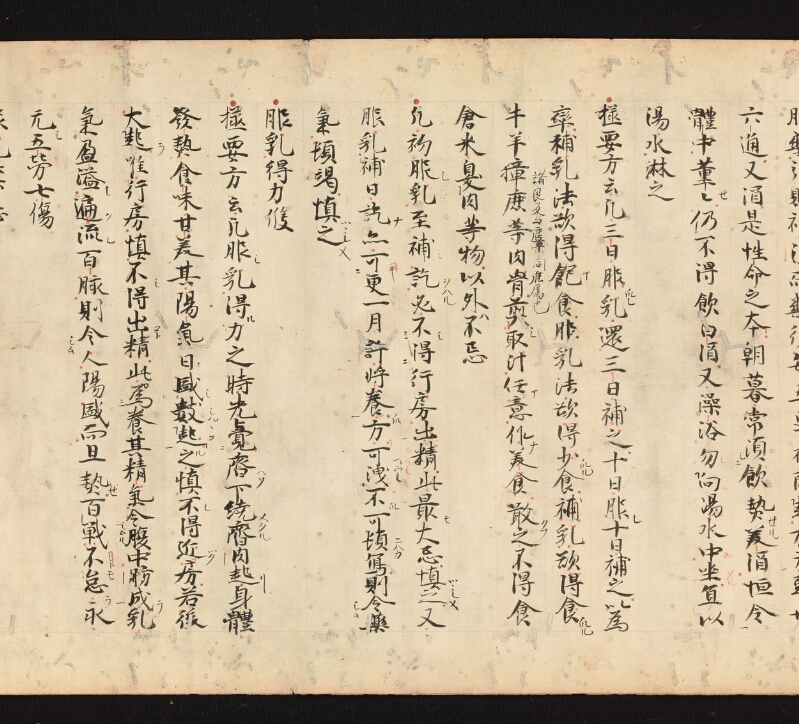 六通又酒是性命之本朝暮常須飲熱美酒恒令
體中薰〻仍不得飲白酒又澡浴勿向湯水中坐宜以
湯水淋之
極要方云凡三日服乳還三日補之十日服十日補之以為
率補乳法欲得飽食服乳法欲得少食補乳欲得食
牛羊獐鹿等肉骨煎取汁任意作美食散之不得食
倉米臭肉等物以外不忌
凡初服乳至補訖必不得行房出精此最大忌慎之又
服乳補日訖亦可更一月許將養方可洩不可頓寫則令藥
氣頓竭慎之
服乳得力候
極要方云凡服乳得力之時先覺齊下繞齊肉起身體
發熱食味甘美其陽氣日盛數起之慎不得近房若後
大起唯行房慎不得出精此為養其精氣令腹中肪成乳
氣盈溢遍流百脉則令人陽盛而且熱百戰不怠永
元五勞七傷